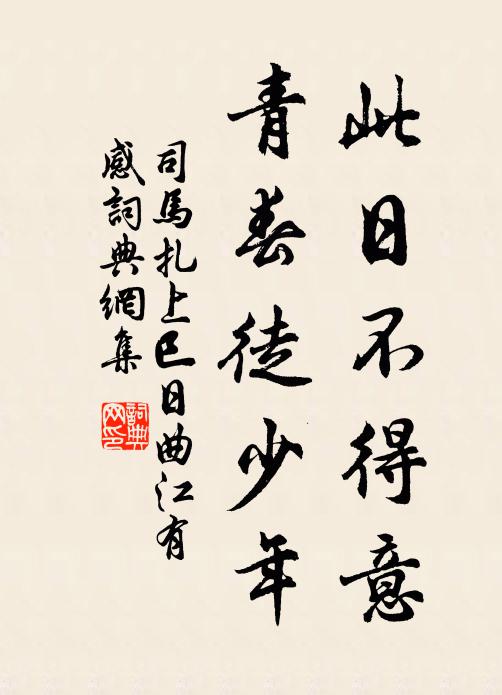 此日不得意
青春徒少年
司馬扎上巳日曲江有
感詞典網集
詞典
网印